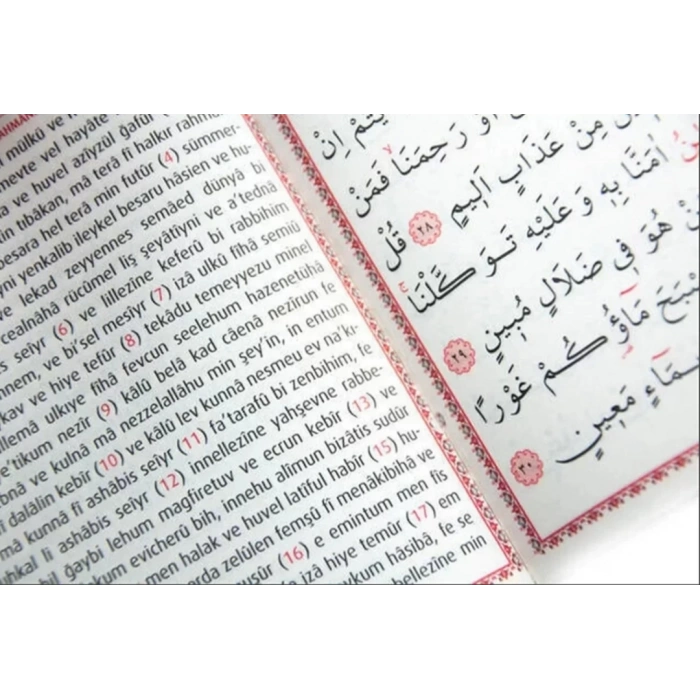 RAHMAN
mülkü ve h
mevte vel hayâte
ve huvel azîyzül ğafûr
tıbâkan, mâ terâ fî halkır rahm
besara hel terâ min futûr (4) sümmer-
yenkalib ileykel besaru hâsien ve hu-
ve lekad zeyyennes semâed dünyâ bi
cealnâhâ rücûmel liş şeyâtiyni ve a'tednâ
seîyr (6) ve lillezîne keferû bi rabbihim
ennem, ve bi'sel mesîyr (7) izâ ulkû fîhâ semiû
ve hiye tefûr (8) tekâdu temeyyezu minel
ulkıye fîhâ fevcun seelehum hazenetühâ
e'tikum nezîr (9) kâlû belâ kad câenâ nezîrun fe
ve kulnâ mâ nezzelallâhu min şey'in, in entum
dalâlin kebîr (10) ve kâlû lev kunnâ nesmeu ev na'kı-
mâ kunnâ fî ashâbis seîyr (11) fa'terafû bi zenbihim, fe
suhkal li ashâbis seîyr (12) innellezîne yahşevne rabbe-
bil ğaybi lehum mağfiretuv ve ecrun kebîr (13) ve
evicherû bih, innehu alîmun bizâtis sudûr
men halak ve huvel latîful habîr (15) hu-
arda zelûlen femşû fî menâkibihâ ve
(16) e emintum men fîs
izâ hiye temûr (17) em
hâsıbâ, fe se
bellezîne min
يتم ان
او رَحِمَنَاۙ فَمَنْ
مِنْ عَذَابٍ اَلٖيمٍ ﴿٢٨﴾ قُلْ
اٰمَنَّا بِهٖ وَعَلَيْهِ تَوَكَّلْنَاۚ
هُوَ فٖي ضَلَالٍ مُبٖينٍ ﴿٢٩﴾
مَٓاؤُ۬كُمْ غَوْرًا
مَعٖينٍ ﴿٣٠﴾